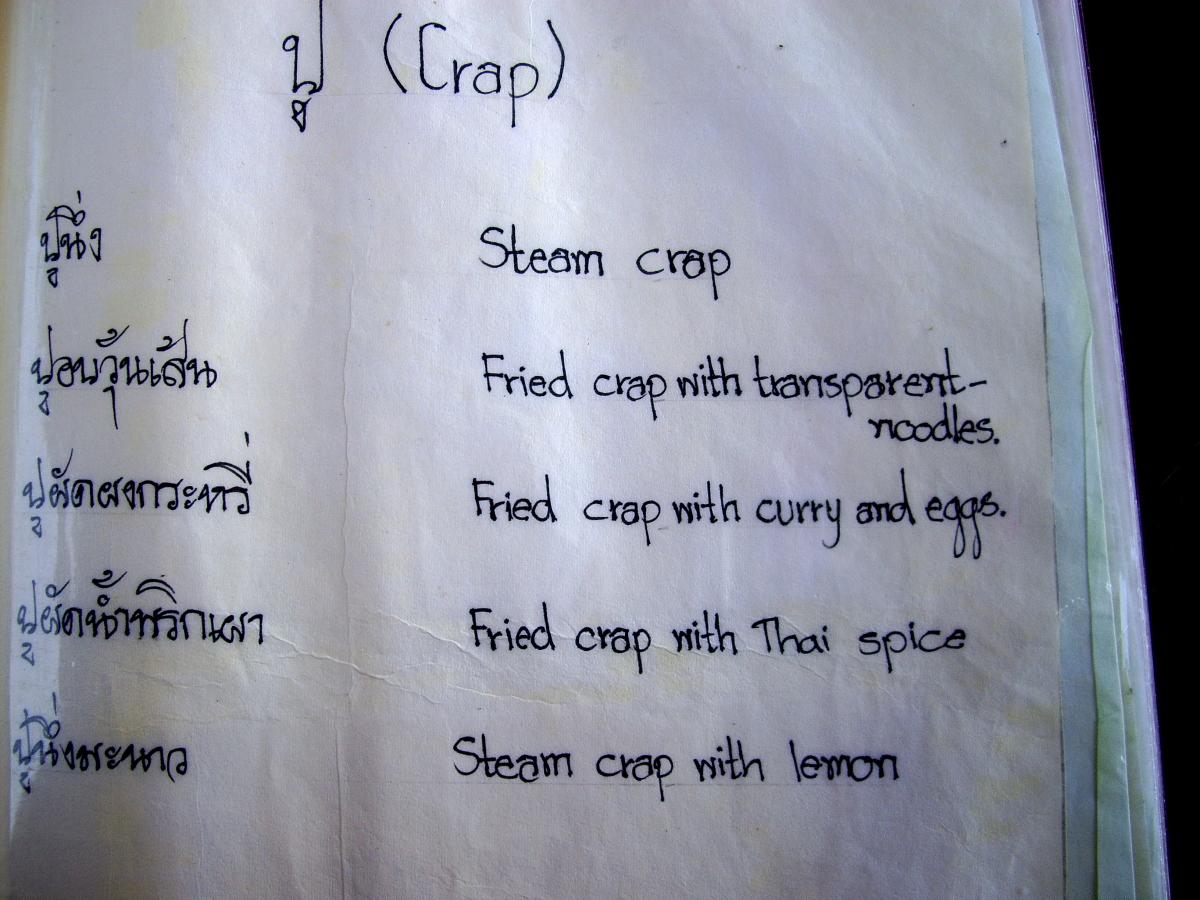 ปู (Crap)
ปูนึ่ง Steam crap
ปูอบวุ้นเส้น Fried crap with transparent-
noodles.
ปูผัดผงกระหรี่ Fried crap with curry and eggs.
ปูผัดน้ำพริกเผา Fried crap with Thai spice
ปูนึ่งมะนาว Steam crap with lemon